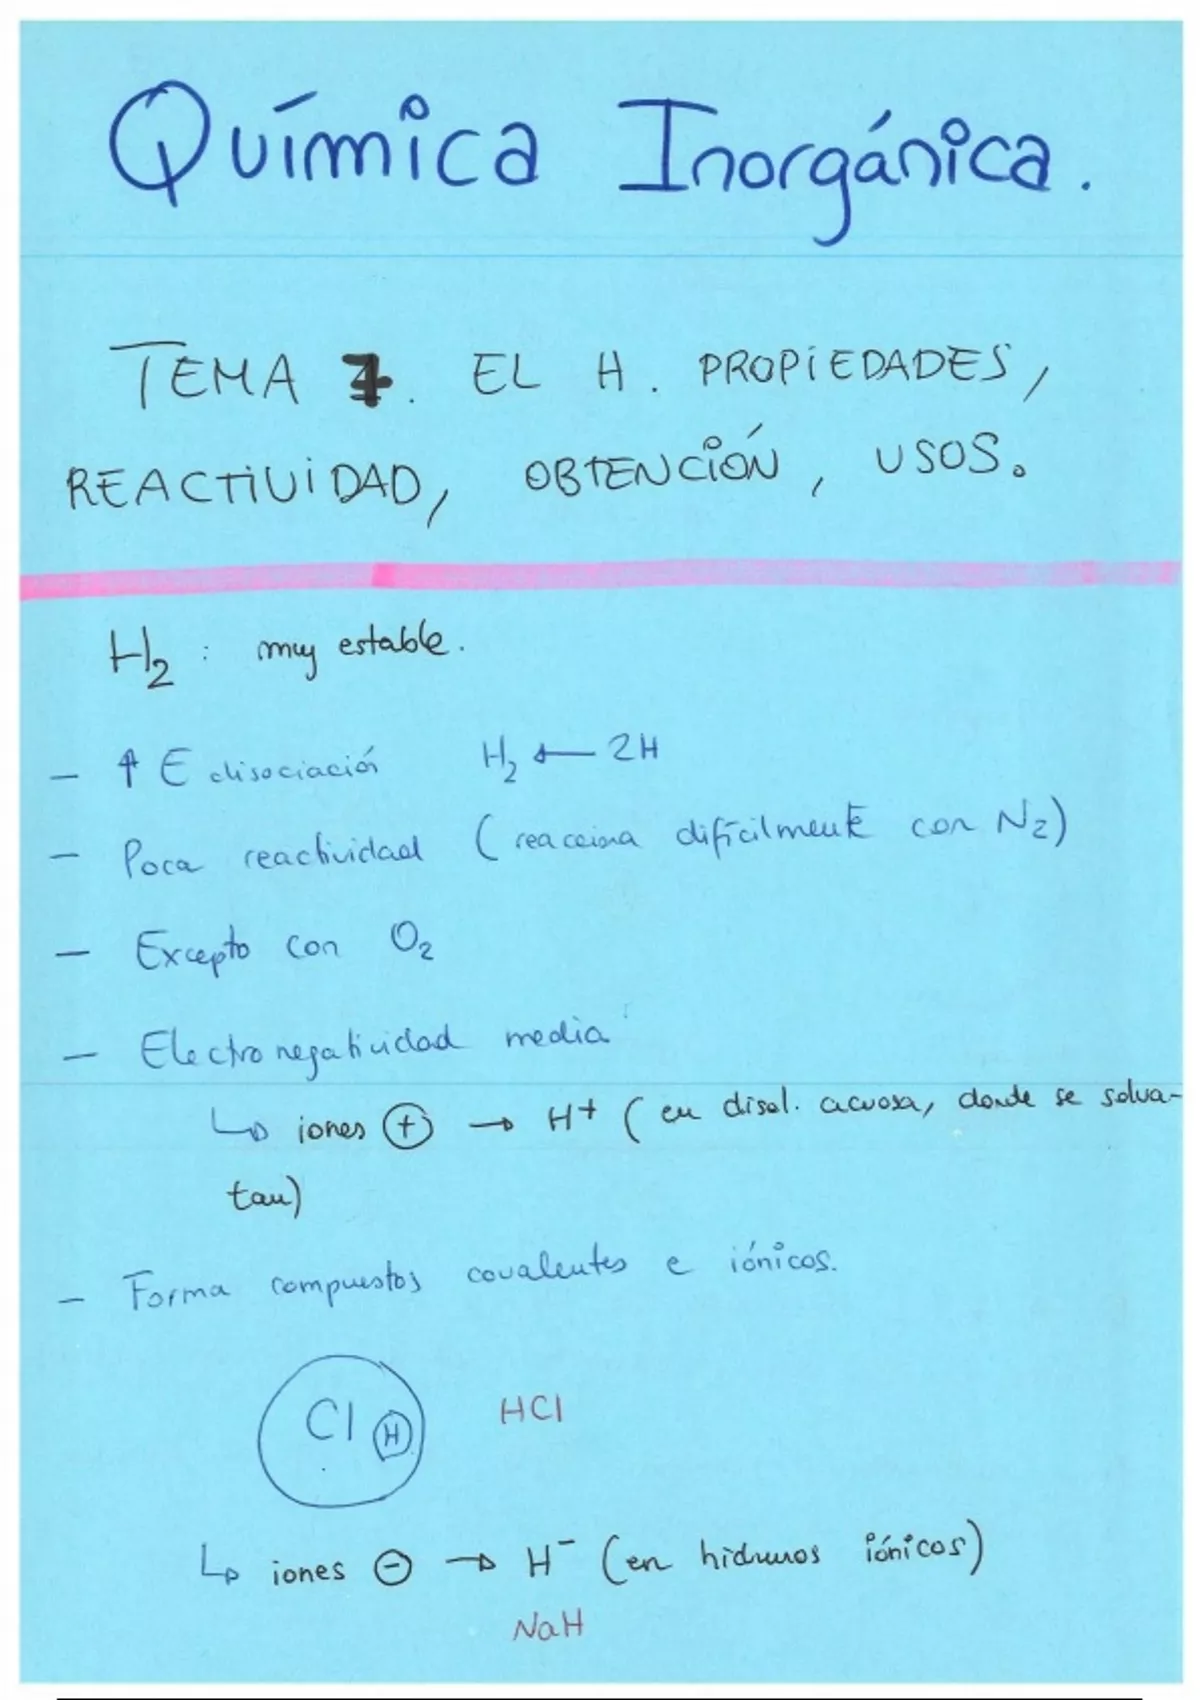 Química Inorgánica.
TEMA 7. EL H. PROPIEDADES,
REACTIVIDAD, OBTENCIÓN, USOS.
H₂ : muy estable.
- ↑ E disociación H₂ ← 2H
- Poca reactividad (reacciona difícilmente con N₂)
- Excepto con O₂
- Electronegatividad media
↳ iones ⊕ → H⁺ (en disol. acuosa, donde se solva-
tan)
- Forma compuestos covalentes e iónicos.
Cl H HCl
↳ iones ⊖ → H⁻ (en hidruros iónicos)
NaH